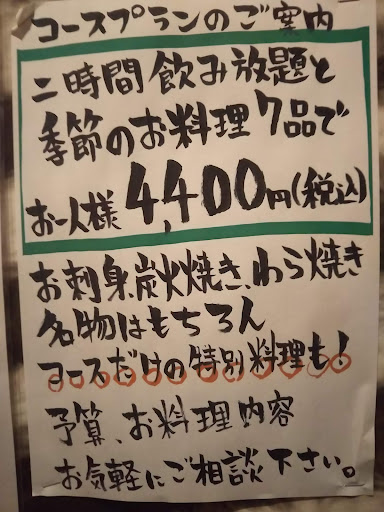 コースプランのご案内
二時間飲み放題と
季節のお料理7品で
お一人様4,400円(税込)
お刺身、炭火焼き、わら焼き
名物はもちろん
コースだけの特別料理も!
予算、お料理内容
お気軽にご相談下さい。